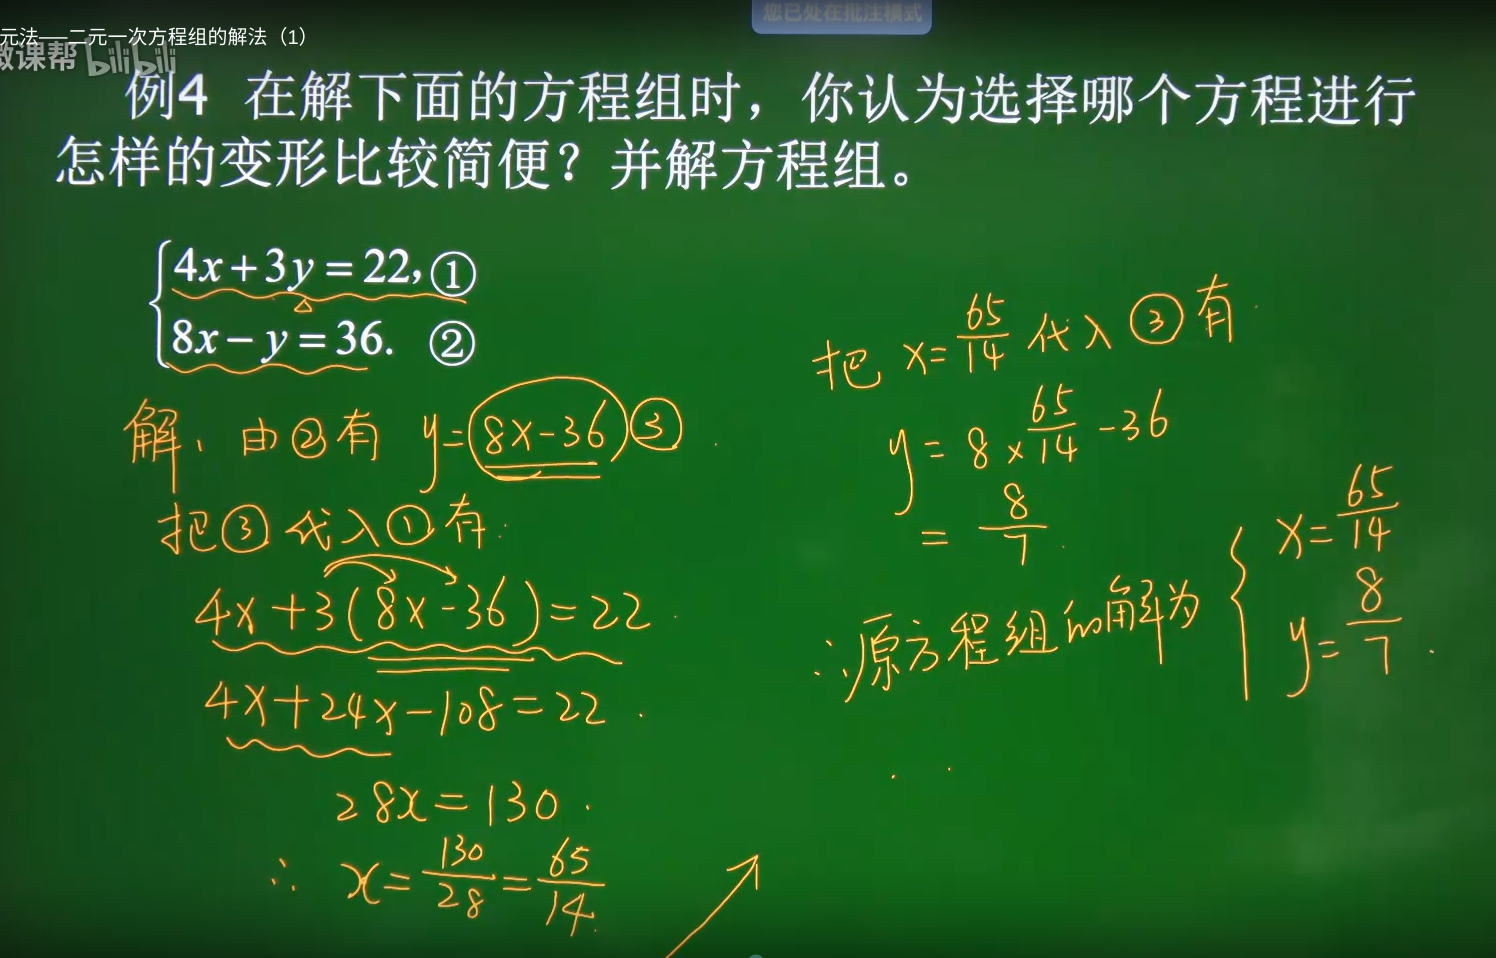 您已处在批注模式
元法——二元一次方程组的解法（1）
微课帮 bilibili
例4 在解下面的方程组时，你认为选择哪个方程进行
怎样的变形比较简便？并解方程组。
4x+3y=22,①
8x-y=36. ②
解、由②有 y=8x-36 ③
把③代入①有.
4x+3(8x-36)=22
4x+24x-108=22
28x=130.
∴ x=130/28=65/14
把 x=65/14 代入③有
y=8×65/14-36
=8/7
∴原方程组的解为 { x=65/14
y=8/7.